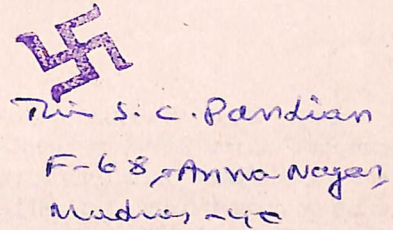 Thi S. C. Pandian
F-68, Anna Nagar,
Madras - 40